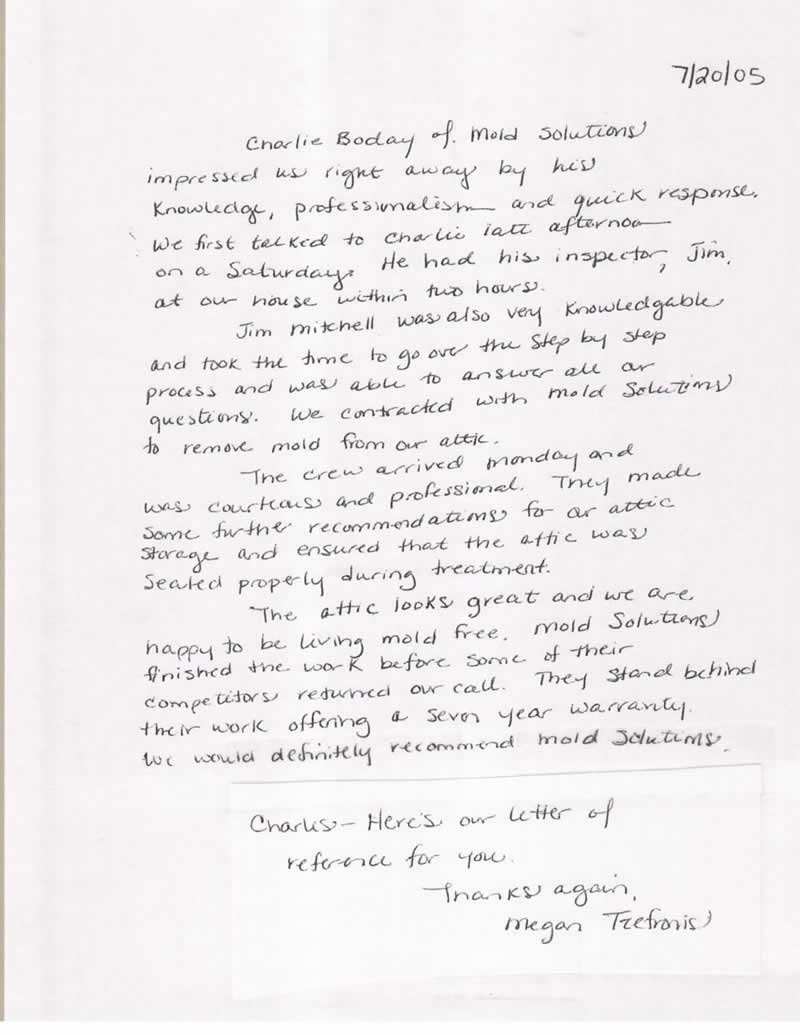 7/20/05
Charlie Boday of Mold Solutions
impressed us right away by his
knowledge, professionalism and quick response.
We first talked to Charlie late afternoon
on a Saturday. He had his inspector, Jim,
at our house within two hours.
Jim Mitchell was also very knowledgable
and took the time to go over the step by step
process and was able to answer all our
questions. We contracted with Mold Solutions
to remove mold from our attic.
The crew arrived Monday and
was courteous and professional. They made
some further recommendations for our attic
storage and ensured that the attic was
sealed properly during treatment.
The attic looks great and we are
happy to be living mold free. Mold Solutions
finished the work before some of their
competitors returned our call. They stand behind
their work offering a seven year warranty.
We would definitely recommend Mold Solutions.
Charles - Here's our letter of
reference for you.
Thanks again,
Megan